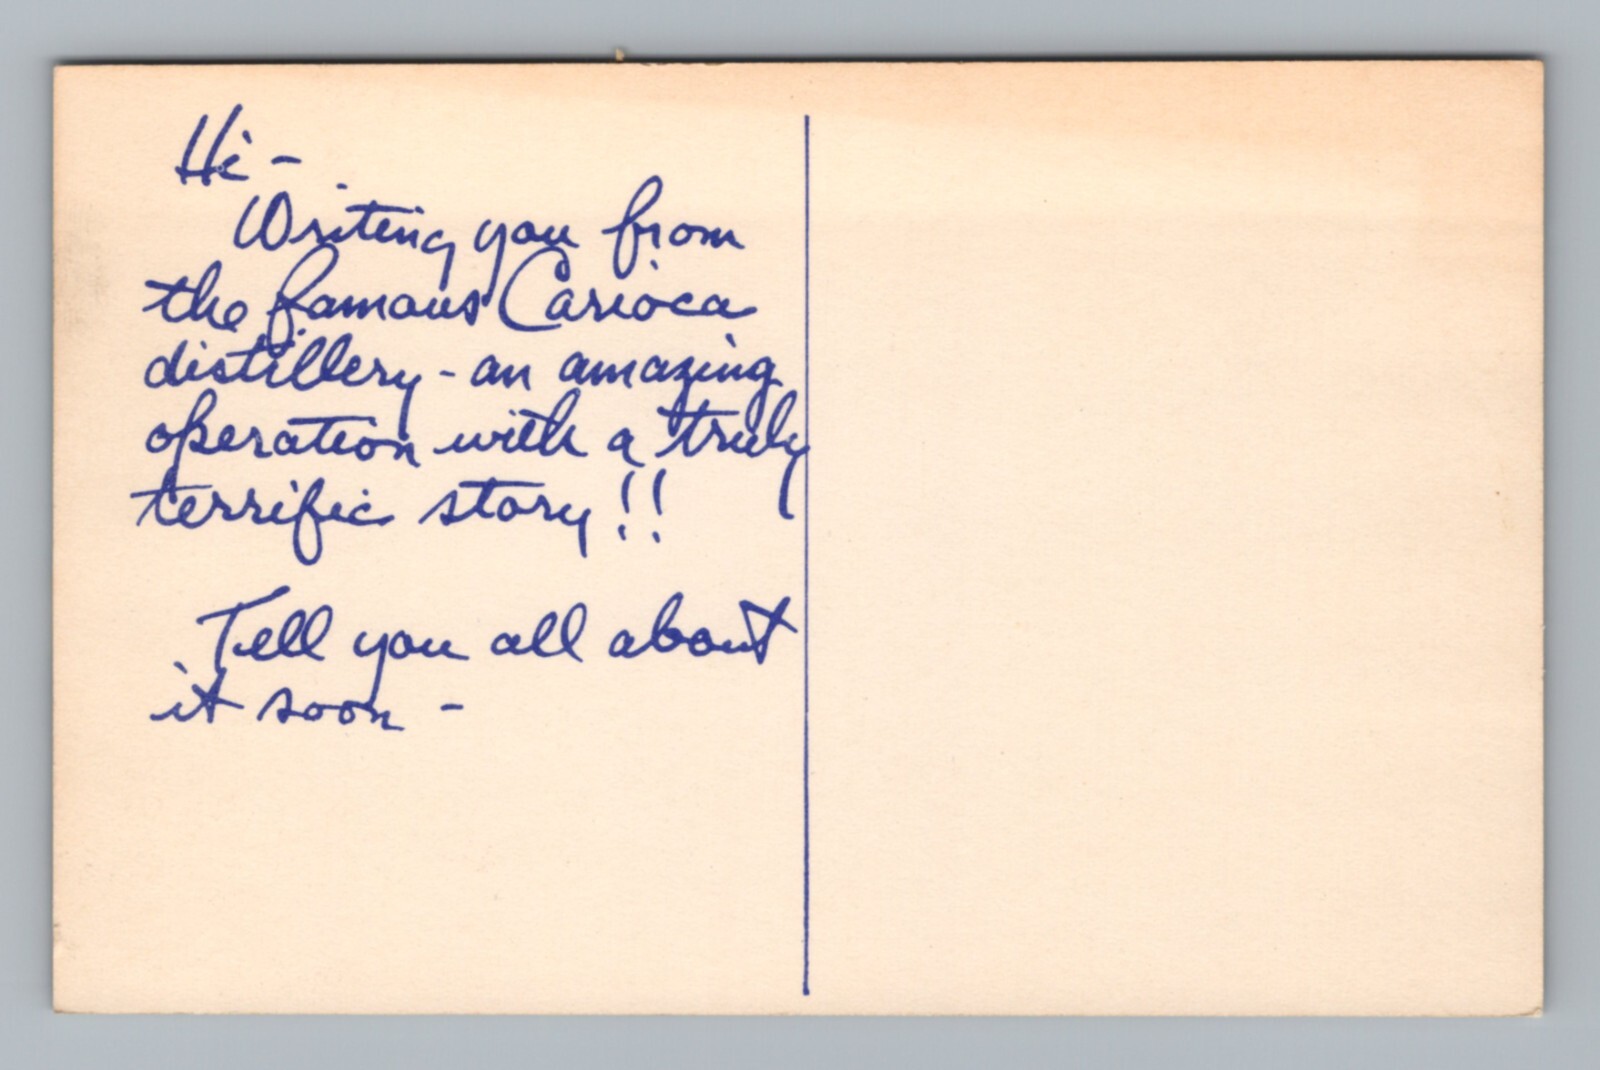 Hi -
Writing you from
the famous Carioca
distillery - an amazing
operation with a truly
terrific story!!
Tell you all about
it soon -